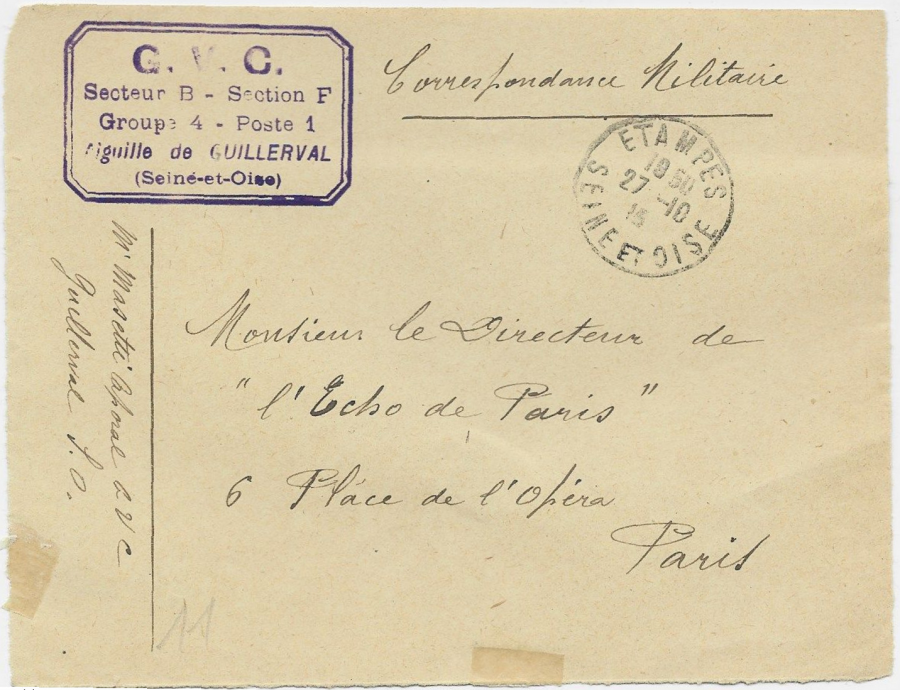 G. V. C.
Secteur B - Section F
Groupe 4 - Poste 1
Aiguille de GUILLERVAL
(Seine-et-Oise)
Correspondance Militaire
ETAMPES
18 50
27 -10
15
SEINE ET OISE
Monsieur le Directeur de
" l'Echo de Paris "
6 Place de l'Opéra
Paris
Mr Masetti Caporal G V C
Guillerval S. O.
11